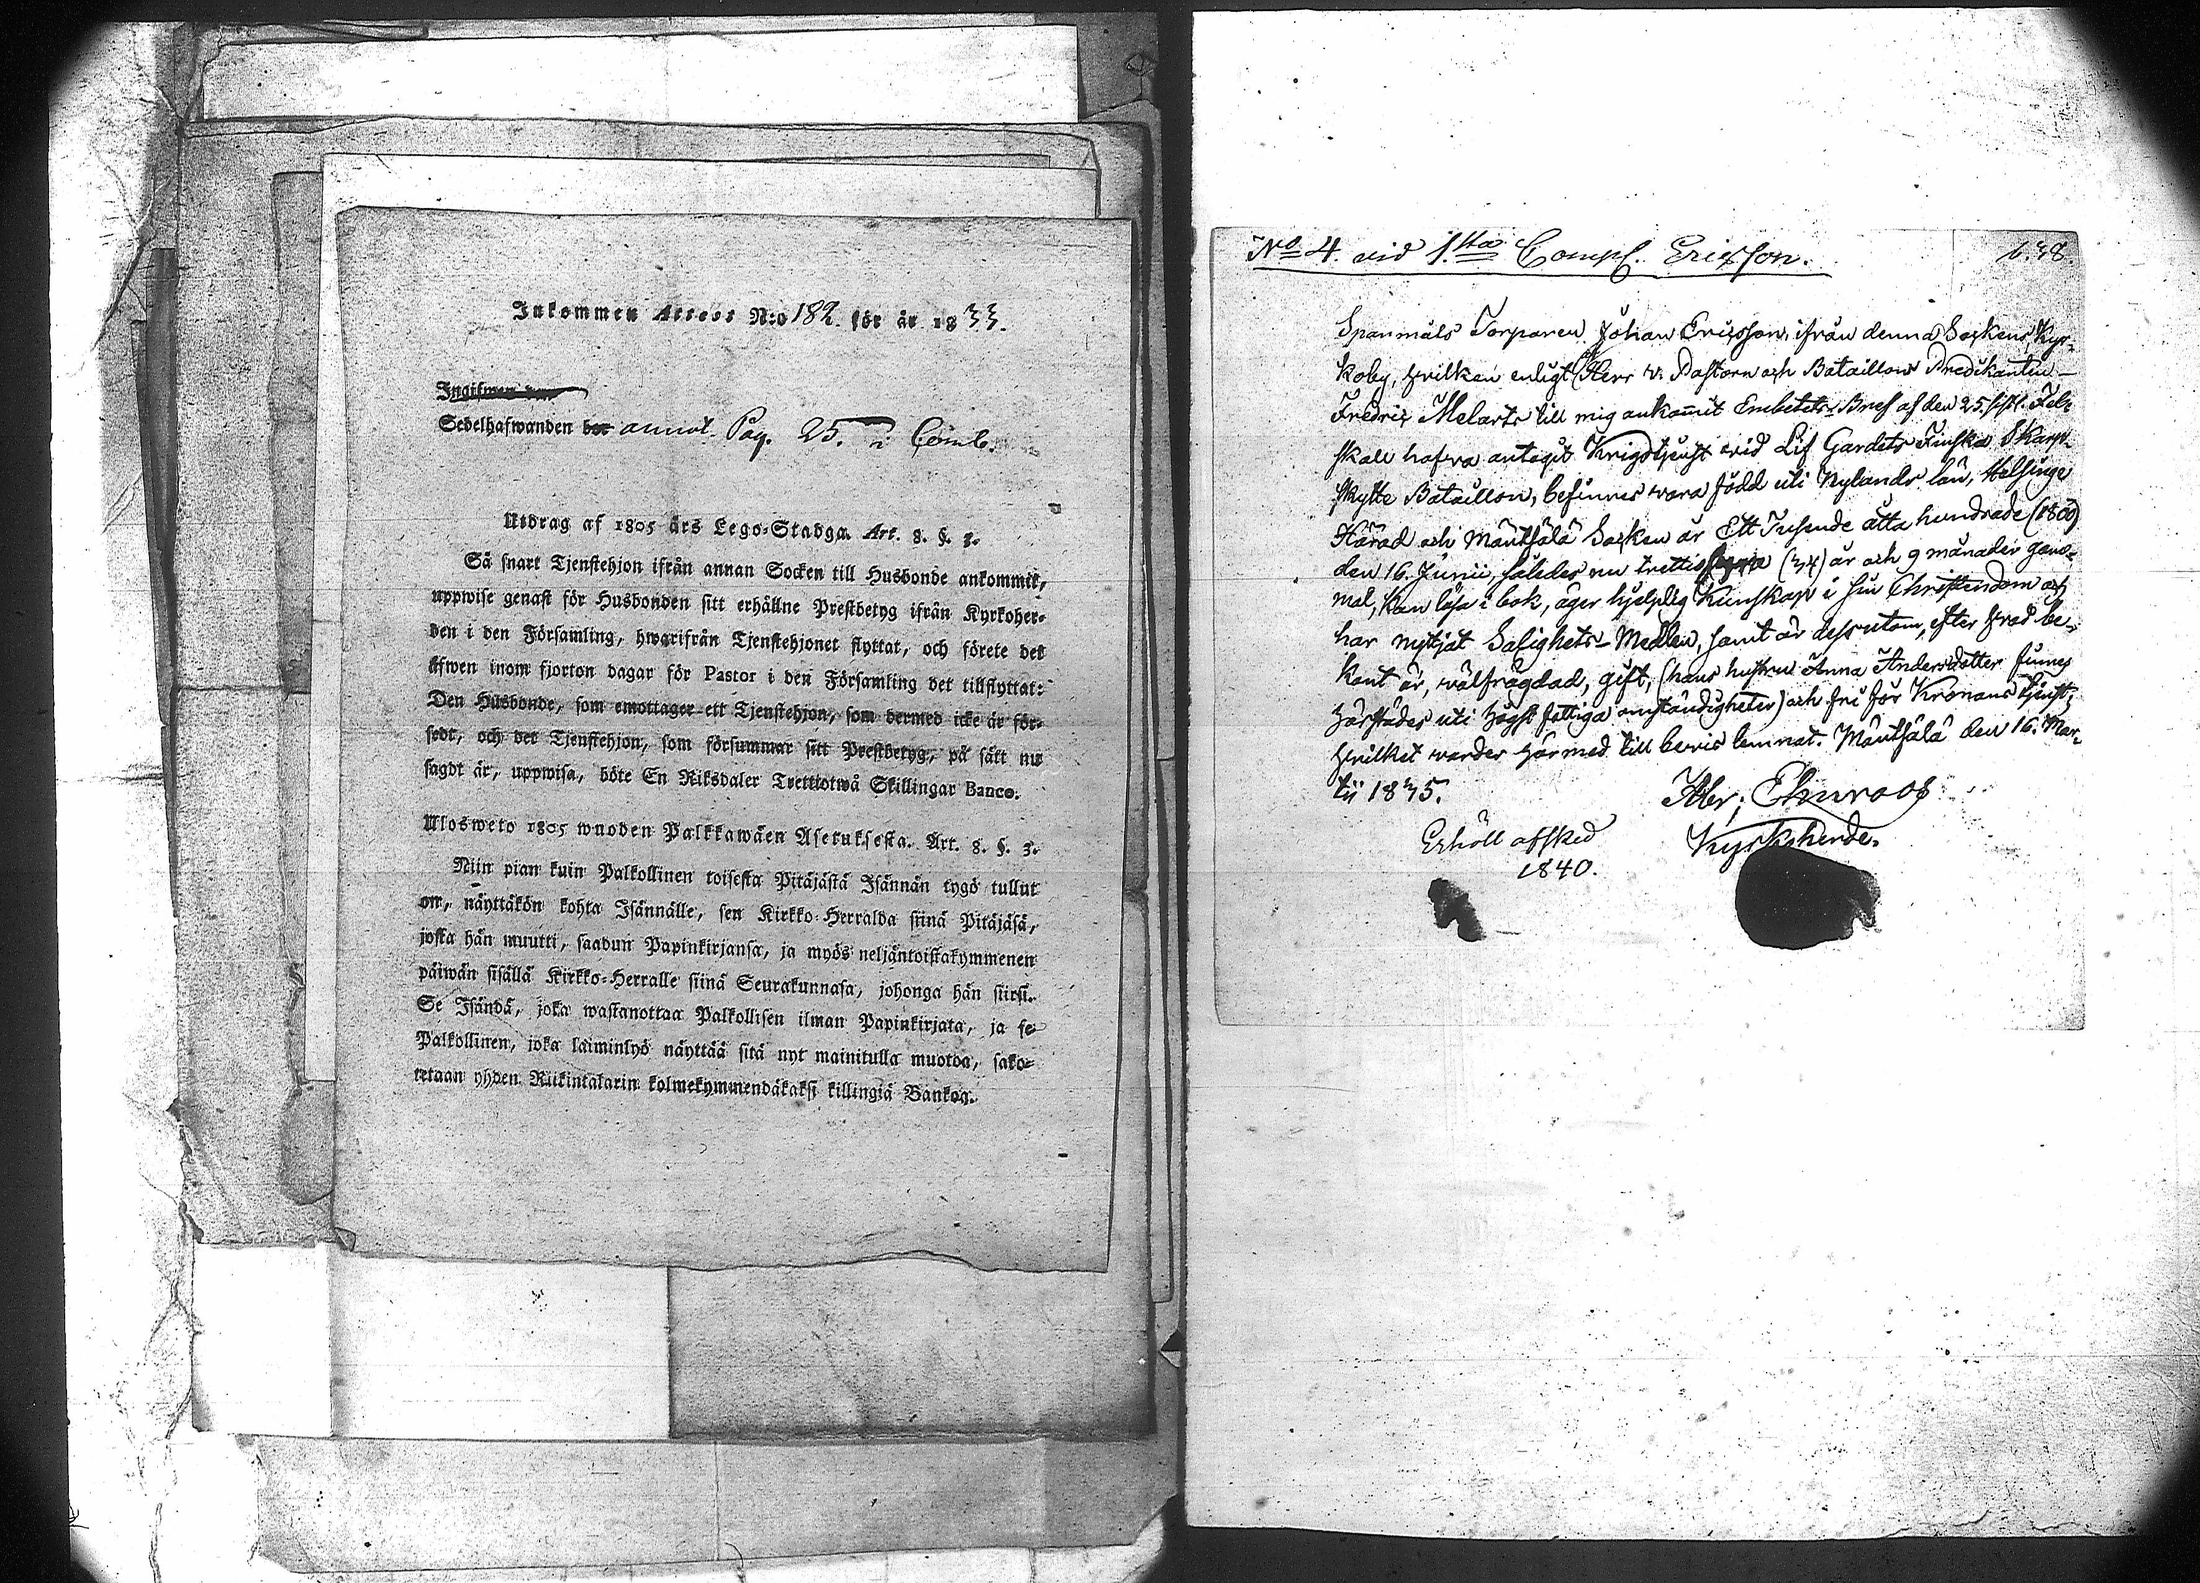 Inkommen Attest N:o 182. för år 1833.
Ingifwen
Sedelhafwanden bor annot. Pag. 25. i Comb.
Utdrag af 1805 års Lego-Stadga. Art. 8. §. 3.
Så snart Tjenstehjon ifrån annan Socken till Husbonde ankommit,
uppwise genast för Husbonden sitt erhållne Prestbetyg ifrån Kyrkoher-
den i den Församling, hwarifrån Tjenstehjonet flyttat, och förete det
äfwen inom fjorton dagar för Pastor i den Församling det tillflyttat:
Den Husbonde, som emottager ett Tjenstehjon, som dermed icke är för-
sedt, och det Tjenstehjon, som försummar sitt Prestbetyg, på sätt nu
sagdt är, uppwisa, böte En Riksdaler Trettiotwå Skillingar Banco.
Ulosweto 1805 wuoden Palkkawäen Asetuksesta. Art. 8. §. 3.
Niin pian kuin Palkollinen toisesta Pitäjästä Isännän tygö tullut
on, näyttäkön kohta Isännälle, sen Kirkko-Herralda siinä Pitäjäsä,
josta hän muutti, saadun Papinkirjansa, ja myös neljäntoistakymmenen
päiwän sisällä Kirkko-Herralle siinä Seurakunnasa, johonga hän siirsi.
Se Isändä, joka wastanottaa Palkollisen ilman Papinkirjata, ja se
Palkollinen, joka laiminlyö näyttää sitä nyt mainitulla muotoa, sako-
tetaan yhden Riikintalarin kolmekymmendäkaksi killingiä Bankoa.
No 4. vid 1.sta Comp. Ericsson. b.38
Spanmåls Torparen Johan Ericsson, ifrån denna Sockens Kyr-
koby, hvilken enligt Herr v. Pastorn och Bataillons Predikanten
Fredric Melarts till mig ankom̄it Embetets-Bref af den 25. sistl. Febr
skall hafva antagit Krigstjenst vid Lif Gardets Finska Skarp-
skytte Bataillon, befinnes vara född uti Nylands län, Helsinge
Härad och Mäntsälä Socken år Ett Tusende åtta hundrade (1800)
den 16. Junii, således nu trettiofyra (34) år och 9 månader gam-
mal, kan läsa i bok, äger hjelplig Kunskap i sin Christendom och
har nytjat Salighets-Medlen, samt är dessutom, efter hvad be-
kant är, välfrägdad, gift, (hans hustru Anna Andersdotter finnes
härstädes uti högst fattiga omständigheter) och fri för Kronans tjenst;
hvilket varder härmed till bevis lemnat. Mäntsälä den 16. Mar-
tii 1835.
Abr; Ehnroos
Kyrkoherde.
Erhöll afsked
1840.